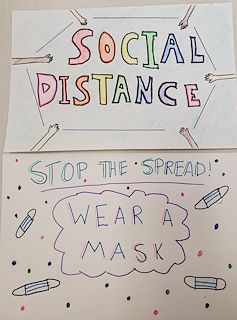 SOCIAL
DISTANCE
STOP THE SPREAD!
WEAR A
MASK